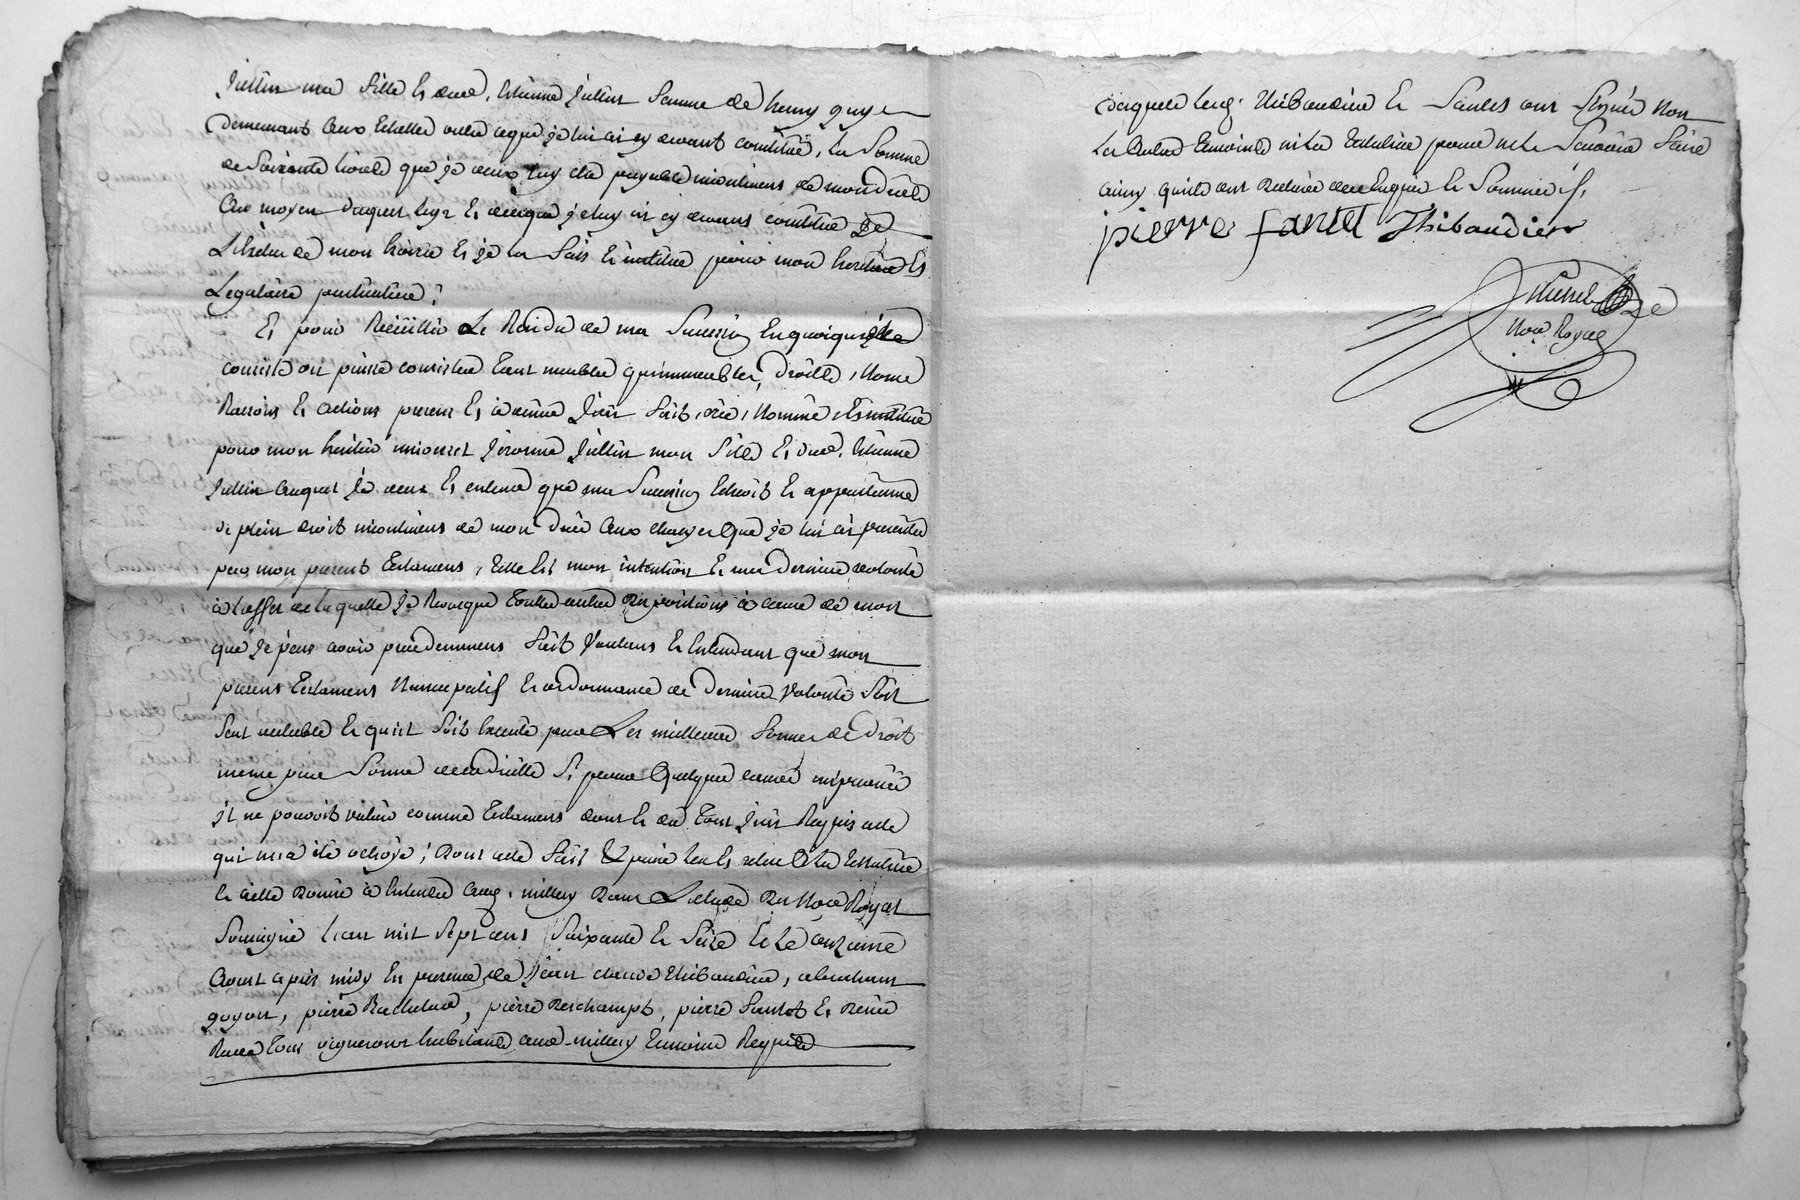 Jullin ma fille & dud. Etienne Jullin femme de henry guyr
demeurant aux Echelles outre ce que je lui ai cy devant constitué, la somme
de soixante livres que je veux luy etre payable incontinent de mon décès
au moyen duquel legs & de ce que je luy ai cy devant constitué je
L'hérite de mon hoirie & je la fais & institue pour mon héritiere &
Legataire particuliere ;
Et pour Recüeillir Le Residu de ma succession En quoiqu'elle
consiste ou puisse consister tant meubles qu'immeubles, droits, noms
Raisons & actions present & à venir J'ai fait, crée, Nommé, & institué
pour mon heritier universel Jerome Jullin mon fils & dud. Etienne
Jullin auquel je veux & entend que ma succession Echoit & appartienne
de plein droit incontinent de mon décès aux charges que je lui ai prescrites
par mon present Testament, telle Est mon intention & ma derniere volonté
à l'effet de laquelle je Revoque toutes autres dispositions à cause de mort
que je peus avoir precedemment fait Voulant & Entendant que mon
present Testament Nuncupatif & ordonnance de derniere Volonté soit
seul valable & qu'il soit Executé par Les meilleures formes de droit
meme par forme de codicille si pour quelque cause imprévüe
il ne pouvoit valoir comme Testament dont & du tout j'ai Requis acte
qui m'a été octroyé ; dont acte fait & par nous leu & relu à la testatrice
& à elle donné à Entendre aud. millery dans L'etude du Nore Royal
soussigné L'an mil sept cens soixante & seize & le onzieme
aoust après midy En presence de Jean claude Thibaudier, abraham
goyon, pierre Rachelard, pierre Deschamps, pierre Fantet & René
tous vignerons habitants aud. millery Temoins Requis
Desquels leds. Thibaudier & Fantet ont signé non
les autres Temoins ni la testatrice pour ne le sçavoir faire
ainsy qu'ils ont declaré de ce Enquis & sommés /.
pierre fantet Thibaudier
Nore Royal